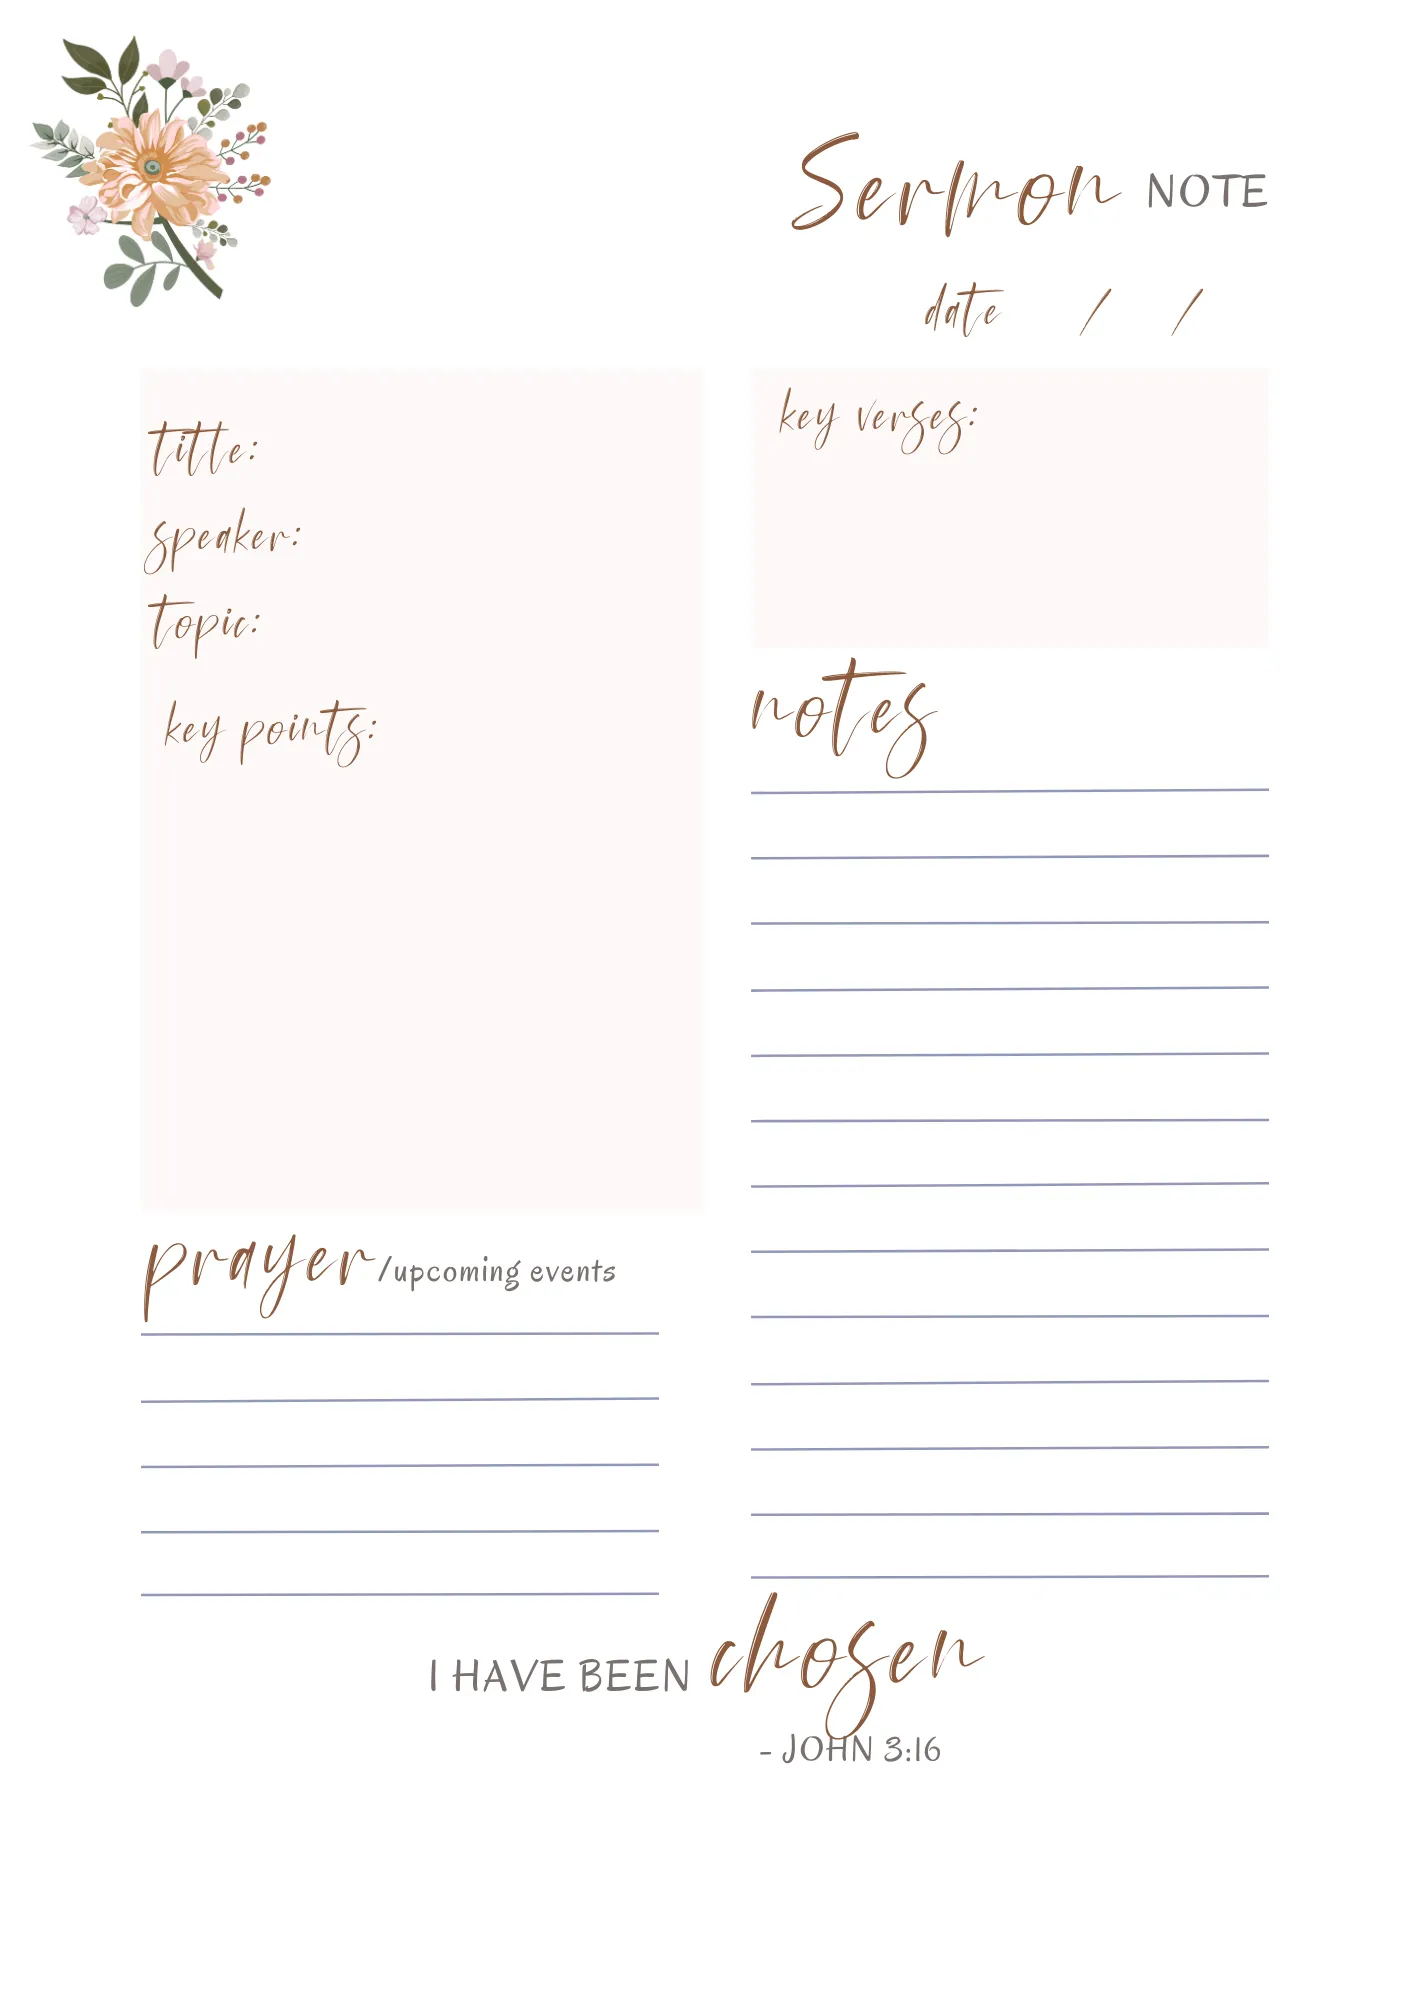 Sermon NOTE
date / /
title:
speaker:
topic:
key points:
key verses:
notes
prayer/upcoming events
I HAVE BEEN chosen
- JOHN 3:16